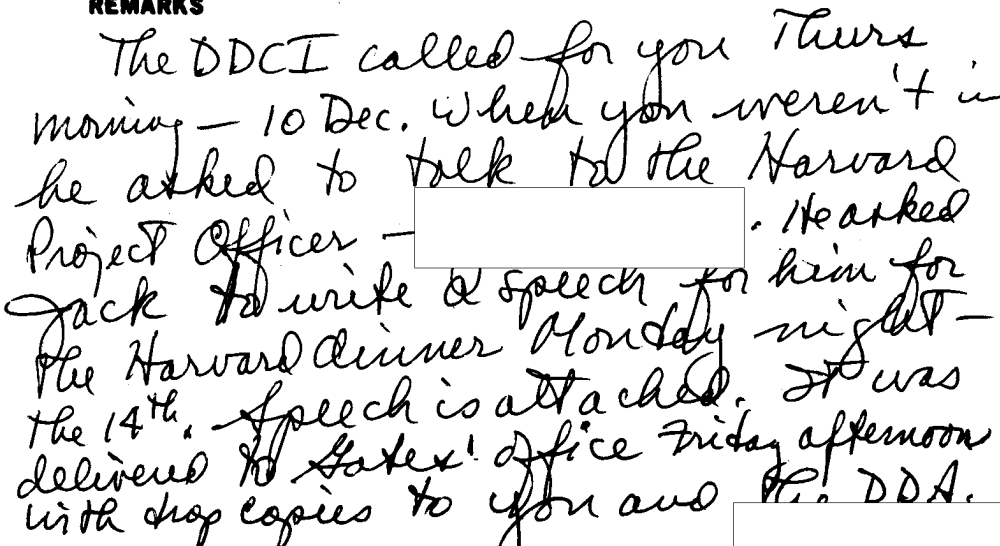 REMARKS
The DDCI called for you Thurs
morning — 10 Dec. When you weren't in
he asked to talk to the Harvard
Project Officer — . He asked
Jack to write a speech for him for
the Harvard dinner Monday night —
the 14th. Speech is attached. It was
delivered to Gates' office Friday afternoon
with drop copies to you and the DDA.